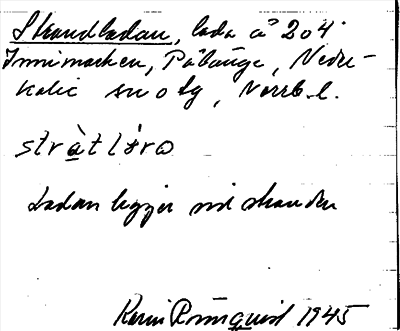 Strandladan, lada å 204
Innimarken, Pålänge, Neder-
kalix sn o tg, Norrb. l.
stràtlǿra
Ladan ligger vid stranden
Karin Rönnquist 1945